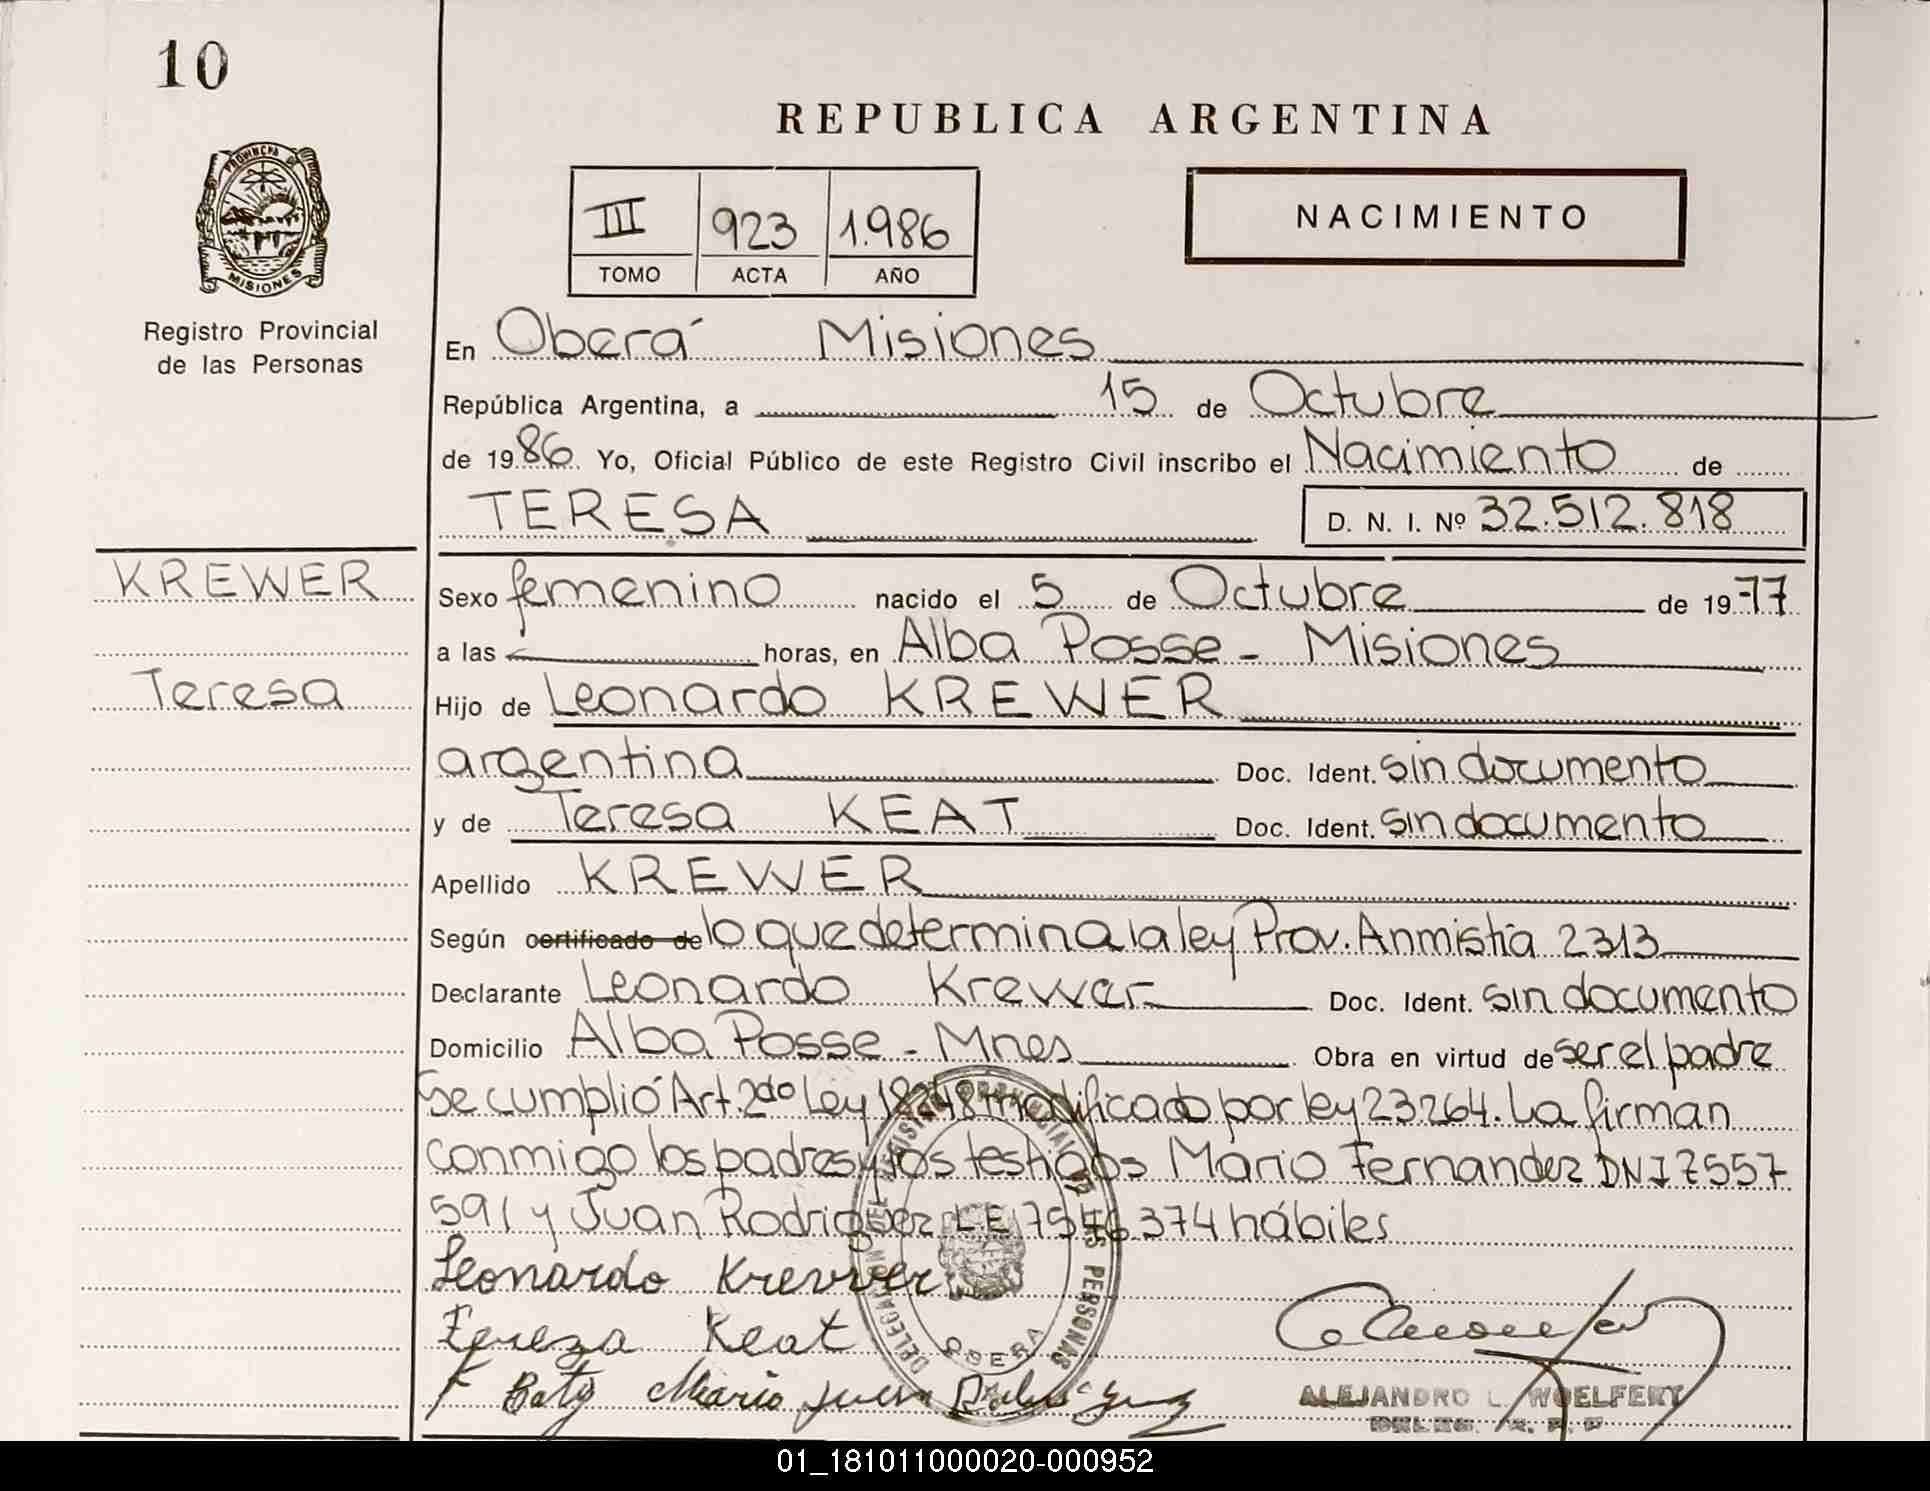 10
REPUBLICA ARGENTINA
PROVINCIA DE
MISIONES
III 923 1.986
TOMO ACTA AÑO
NACIMIENTO
Registro Provincial
de las Personas
En Oberá Misiones
República Argentina, a 15 de Octubre
de 1986 Yo, Oficial Público de este Registro Civil inscribo el Nacimiento de
TERESA D. N. I. Nº 32.512.818
KREWER
Teresa
Sexo femenino nacido el 5 de Octubre de 1977
a las horas, en Alba Posse - Misiones
Hijo de Leonardo KREWER
argentina Doc. Ident. sin documento
y de Teresa KEAT Doc. Ident. sin documento
Apellido KREWER
Según certificado de lo que determina la ley Prov. Anmistía 2313
Declarante Leonardo Krewer Doc. Ident. sin documento
Domicilio Alba Posse - Mnes Obra en virtud de ser el padre
Se cumplió Art. 2do Ley 18248 modificado por ley 23264. La firman
conmigo los padres y los testigos Mario Fernandez DNI 7557
591 y Juan Rodriguez LE 7546374 hábiles
Leonardo Krewer
Tereza Keat
Mario Juan
DELEGACION DEL REGISTRO PROVINCIAL DE LAS PERSONAS
OBERA
ALEJANDRO L. WOELFERT
01_181011000020-000952